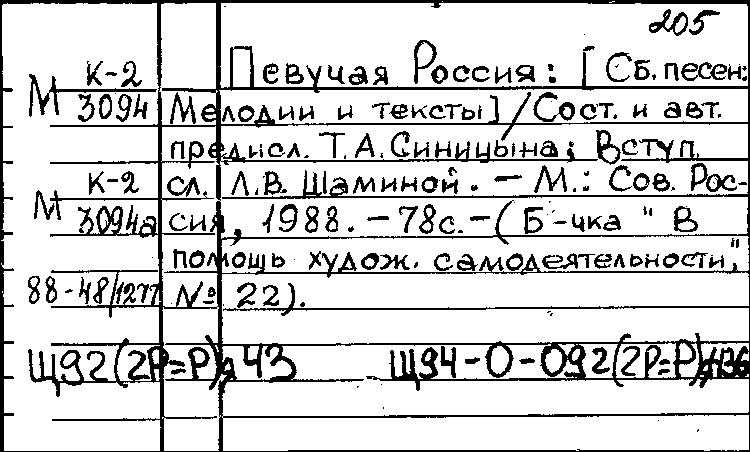 205
К-2 Певучая Россия: [Сб. песен:
М 3094 Мелодии и тексты] / Сост. и авт.
предисл. Т.А. Синицына; Вступ.
К-2 сл. Л.В. Шаминой. – М.: Сов. Рос-
М 3094а сия, 1988. – 78с. – (Б-чка "В
помощь худож. самодеятельности",
88-48/1277 № 22).
Щ92(2Р=Р)я43 Щ94-0-092(2Р=Р)